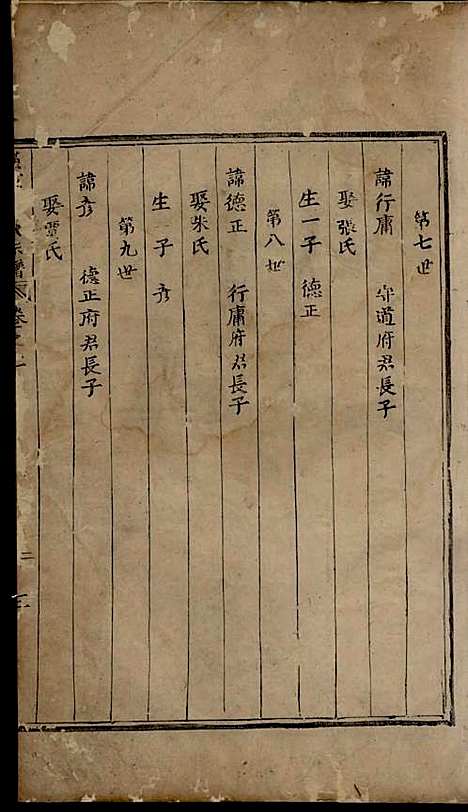 第七世
諱行庸 守道府君長子
娶張氏
生一子 德正
第八世
諱德正 行庸府君長子
娶朱氏
生一子 彥
第九世
諱彥 德正府君長子
娶賈氏
氏譜 卷之
二